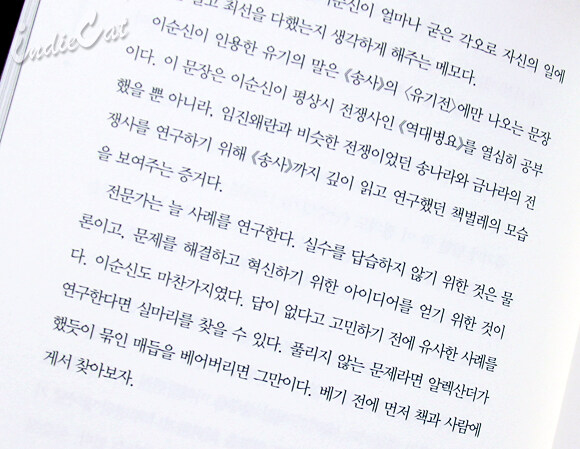 IndieCat
이순신이 얼마나 굳은 각오로 자신의 일에
최선을 다했는지 생각하게 해주는 메모다.
이순신이 인용한 유기의 말은 《송사》의 〈유기전〉에만 나오는 문장
이다. 이 문장은 이순신이 평상시 전쟁사인 《역대병요》를 열심히 공부
했을 뿐 아니라, 임진왜란과 비슷한 전쟁이었던 송나라와 금나라의 전
쟁사를 연구하기 위해 《송사》까지 깊이 읽고 연구했던 책벌레의 모습
을 보여주는 증거다.
전문가는 늘 사례를 연구한다. 실수를 답습하지 않기 위한 것은 물
론이고, 문제를 해결하고 혁신하기 위한 아이디어를 얻기 위한 것이
다. 이순신도 마찬가지였다. 답이 없다고 고민하기 전에 유사한 사례를
연구한다면 실마리를 찾을 수 있다. 풀리지 않는 문제라면 알렉산더가
했듯이 묶인 매듭을 베어버리면 그만이다. 베기 전에 먼저 책과 사람에
게서 찾아보자.